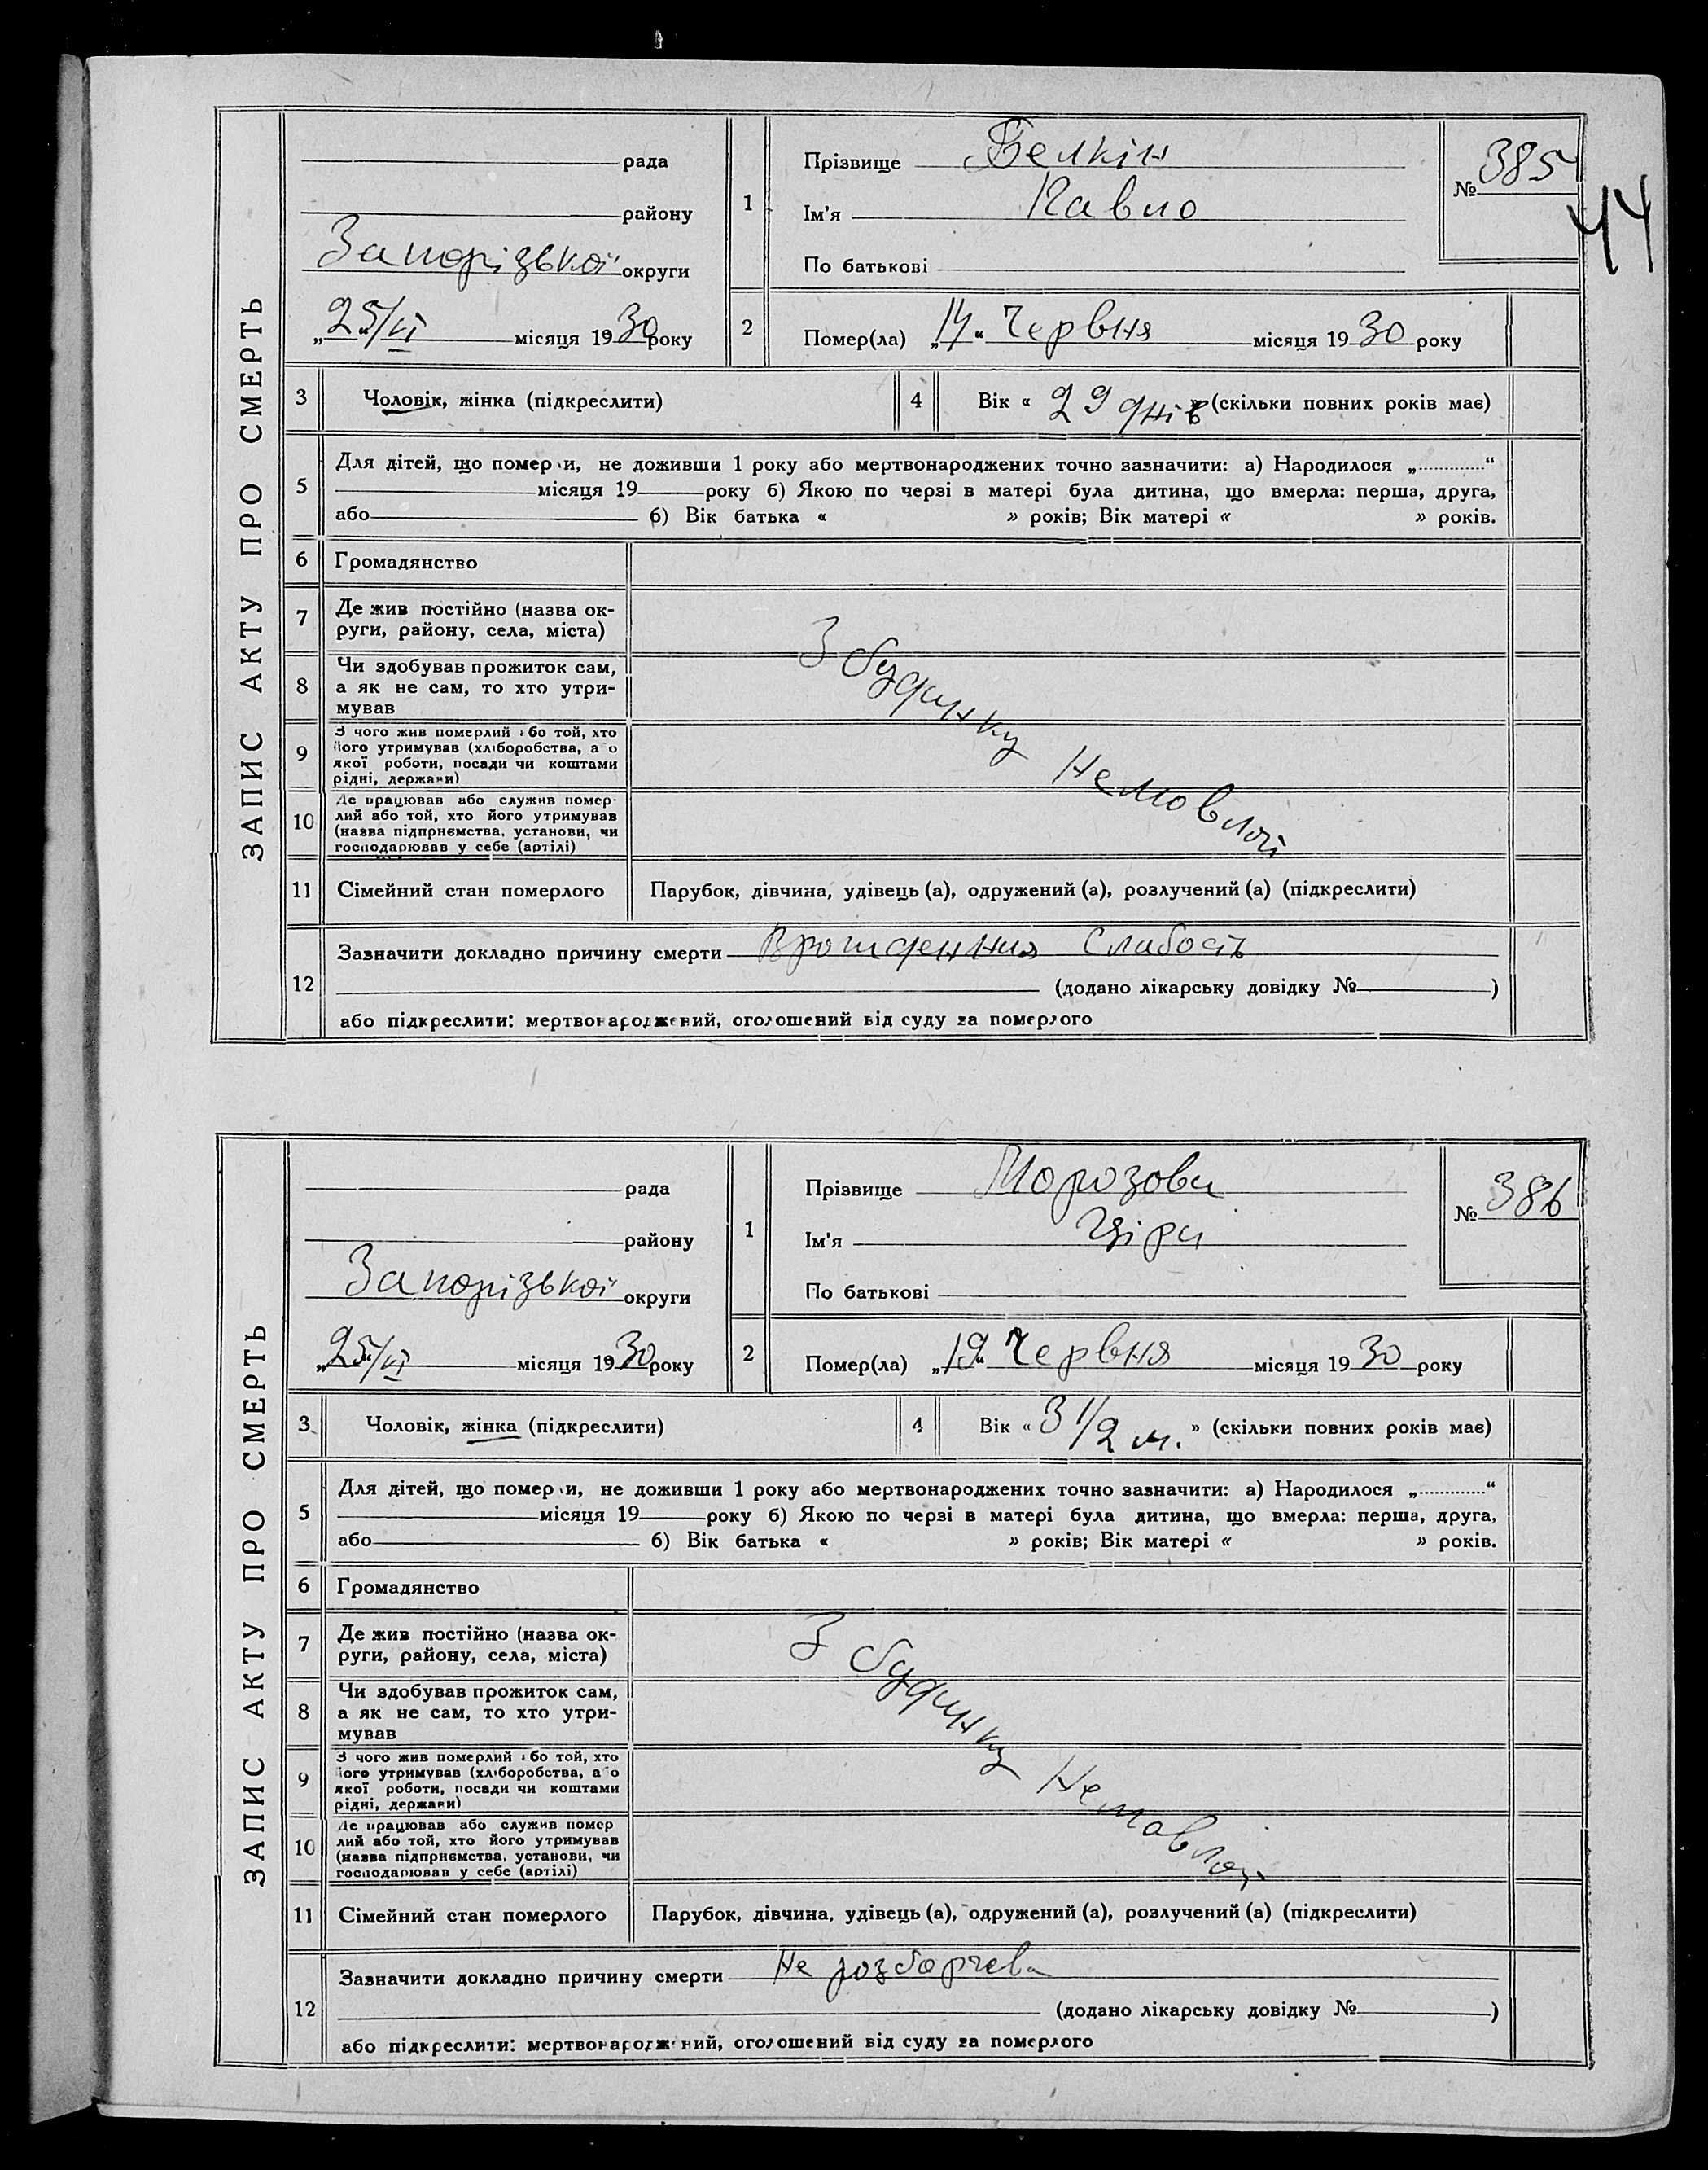 ЗАПИС АКТУ ПРО СМЕРТЬ
рада
району
Запорізької округи
„25/VI місяця 1930 року
1
Прізвище Белкін
Ім'я Павло
По батькові
№ 385
44
2
Помер(ла) „14“ Червня місяця 1930 року
3
Чоловік, жінка (підкреслити)
4
Вік « 29 днів » (скільки повних років має)
5
Для дітей, що помер и, не доживши 1 року або мертвонароджених точно зазначити: а) Народилося „............“
місяця 19 року б) Якою по черзі в матері була дитина, що вмерла: перша, друга,
або б) Вік батька « » років; Вік матері « » років.
6
Громадянство
7
Де жив постійно (назва ок-
руги, району, села, міста)
8
Чи здобував прожиток сам,
а як не сам, то хто утри-
мував
9
З чого жив померлий або той, хто
його утримував (хліборобства, або
якої роботи, посади чи коштами
рідні, держави)
10
Де працював або служив помер-
лий або той, хто його утримував
(назва підприємства, установи, чи
господарював у себе (артілі)
З будинку Немовлят
11
Сімейний стан померлого
Парубок, дівчина, удівець (а), одружений (а), розлучений (а) (підкреслити)
12
Зазначити докладно причину смерти Врожденная Слабость
(додано лікарську довідку № )
або підкреслити: мертвонароджений, оголошений від суду за померлого
ЗАПИС АКТУ ПРО СМЕРТЬ
рада
району
Запорізької округи
„25“/VI місяця 1930 року
1
Прізвище Морозова
Ім'я Ціра
По батькові
№ 386
2
Помер(ла) „19“ Червня місяця 1930 року
3
Чоловік, жінка (підкреслити)
4
Вік « 3 1/2 м. » (скільки повних років має)
5
Для дітей, що помер и, не доживши 1 року або мертвонароджених точно зазначити: а) Народилося „............“
місяця 19 року б) Якою по черзі в матері була дитина, що вмерла: перша, друга,
або б) Вік батька « » років; Вік матері « » років.
6
Громадянство
7
Де жив постійно (назва ок-
руги, району, села, міста)
8
Чи здобував прожиток сам,
а як не сам, то хто утри-
мував
9
З чого жив померлий або той, хто
його утримував (хліборобства, або
якої роботи, посади чи коштами
рідні, держави)
10
Де працював або служив помер
лий або той, хто його утримував
(назва підприємства, установи, чи
господарював у себе (артілі)
З будинку Немовлят
11
Сімейний стан померлого
Парубок, дівчина, удівець (а), одружений (а), розлучений (а) (підкреслити)
12
Зазначити докладно причину смерти Не розборчева
(додано лікарську довідку № )
або підкреслити: мертвонароджений, оголошений від суду за померлого